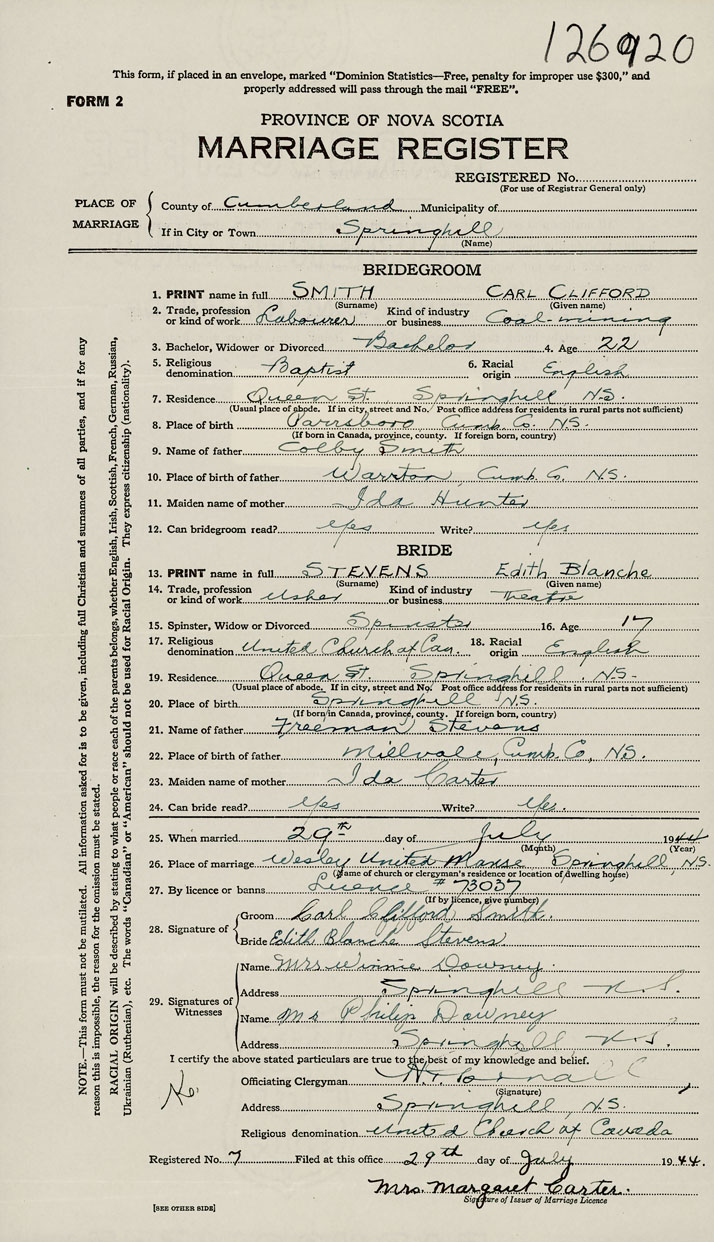 126920
This form, if placed in an envelope, marked "Dominion Statistics—Free, penalty for improper use $300," and
properly addressed will pass through the mail "FREE".
FORM 2
PROVINCE OF NOVA SCOTIA
MARRIAGE REGISTER
REGISTERED No.
(For use of Registrar General only)
PLACE OF MARRIAGE
County of Cumberland Municipality of
If in City or Town Springhill
(Name)
BRIDEGROOM
1. PRINT name in full SMITH CARL CLIFFORD
(Surname) (Given name)
2. Trade, profession or kind of work Labourer Kind of industry or business Coal-mining
3. Bachelor, Widower or Divorced Bachelor 4. Age 22
5. Religious denomination Baptist 6. Racial origin English
7. Residence Queen St. Springhill N.S.
(Usual place of abode. If in city, street and No. Post office address for residents in rural parts not sufficient)
8. Place of birth Parrsboro, Cumb. Co. N.S.
(If born in Canada, province, county. If foreign born, country)
9. Name of father Colby Smith
10. Place of birth of father Warrton, Cumb. Co. N.S.
11. Maiden name of mother Ida Hunter
12. Can bridegroom read? Yes Write? Yes
BRIDE
13. PRINT name in full STEVENS Edith Blanche
(Surname) (Given name)
14. Trade, profession or kind of work Usher Kind of industry or business Theatre
15. Spinster, Widow or Divorced Spinster 16. Age 17
17. Religious denomination United Church of Can. 18. Racial origin English
19. Residence Queen St Springhill N.S.
(Usual place of abode. If in city, street and No. Post office address for residents in rural parts not sufficient)
20. Place of birth Springhill N.S.
(If born in Canada, province, county. If foreign born, country)
21. Name of father Freeman Stevens
22. Place of birth of father Millvale, Cumb. Co, N.S.
23. Maiden name of mother Ida Carter
24. Can bride read? Yes Write? Yes.
25. When married 29th day of July 1944
(Month) (Year)
26. Place of marriage Wesley United Manse Springhill, N.S.
(Name of church or clergyman's residence or location of dwelling house)
27. By licence or banns Licence # 73037
(If by licence, give number)
28. Signature of
Groom Carl Clifford Smith.
Bride Edith Blanche Stevens
29. Signatures of Witnesses
Name Mrs Winnie Downey
Address Springhill N.S.
Name Mr Philip Downey
Address Springhill N.S.
I certify the above stated particulars are true to the best of my knowledge and belief.
Officiating Clergyman
(Signature)
Address Springhill, N.S.
Religious denomination United Church of Canada
Registered No. 7 Filed at this office 29th day of July 1944.
Mrs. Margaret Carter.
Signature of Issuer of Marriage Licence
[SEE OTHER SIDE]
NOTE.—This form must not be mutilated. All information asked for is to be given, including full Christian and surnames of all parties, and if for any
reason this is impossible, the reason for the omission must be stated.
RACIAL ORIGIN will be described by stating to what people or race each of the parents belongs, whether English, Irish, Scottish, French, German, Russian,
Ukrainian (Ruthenian), etc. The words "Canadian" or "American" should not be used for Racial Origin. They express citizenship (nationality).